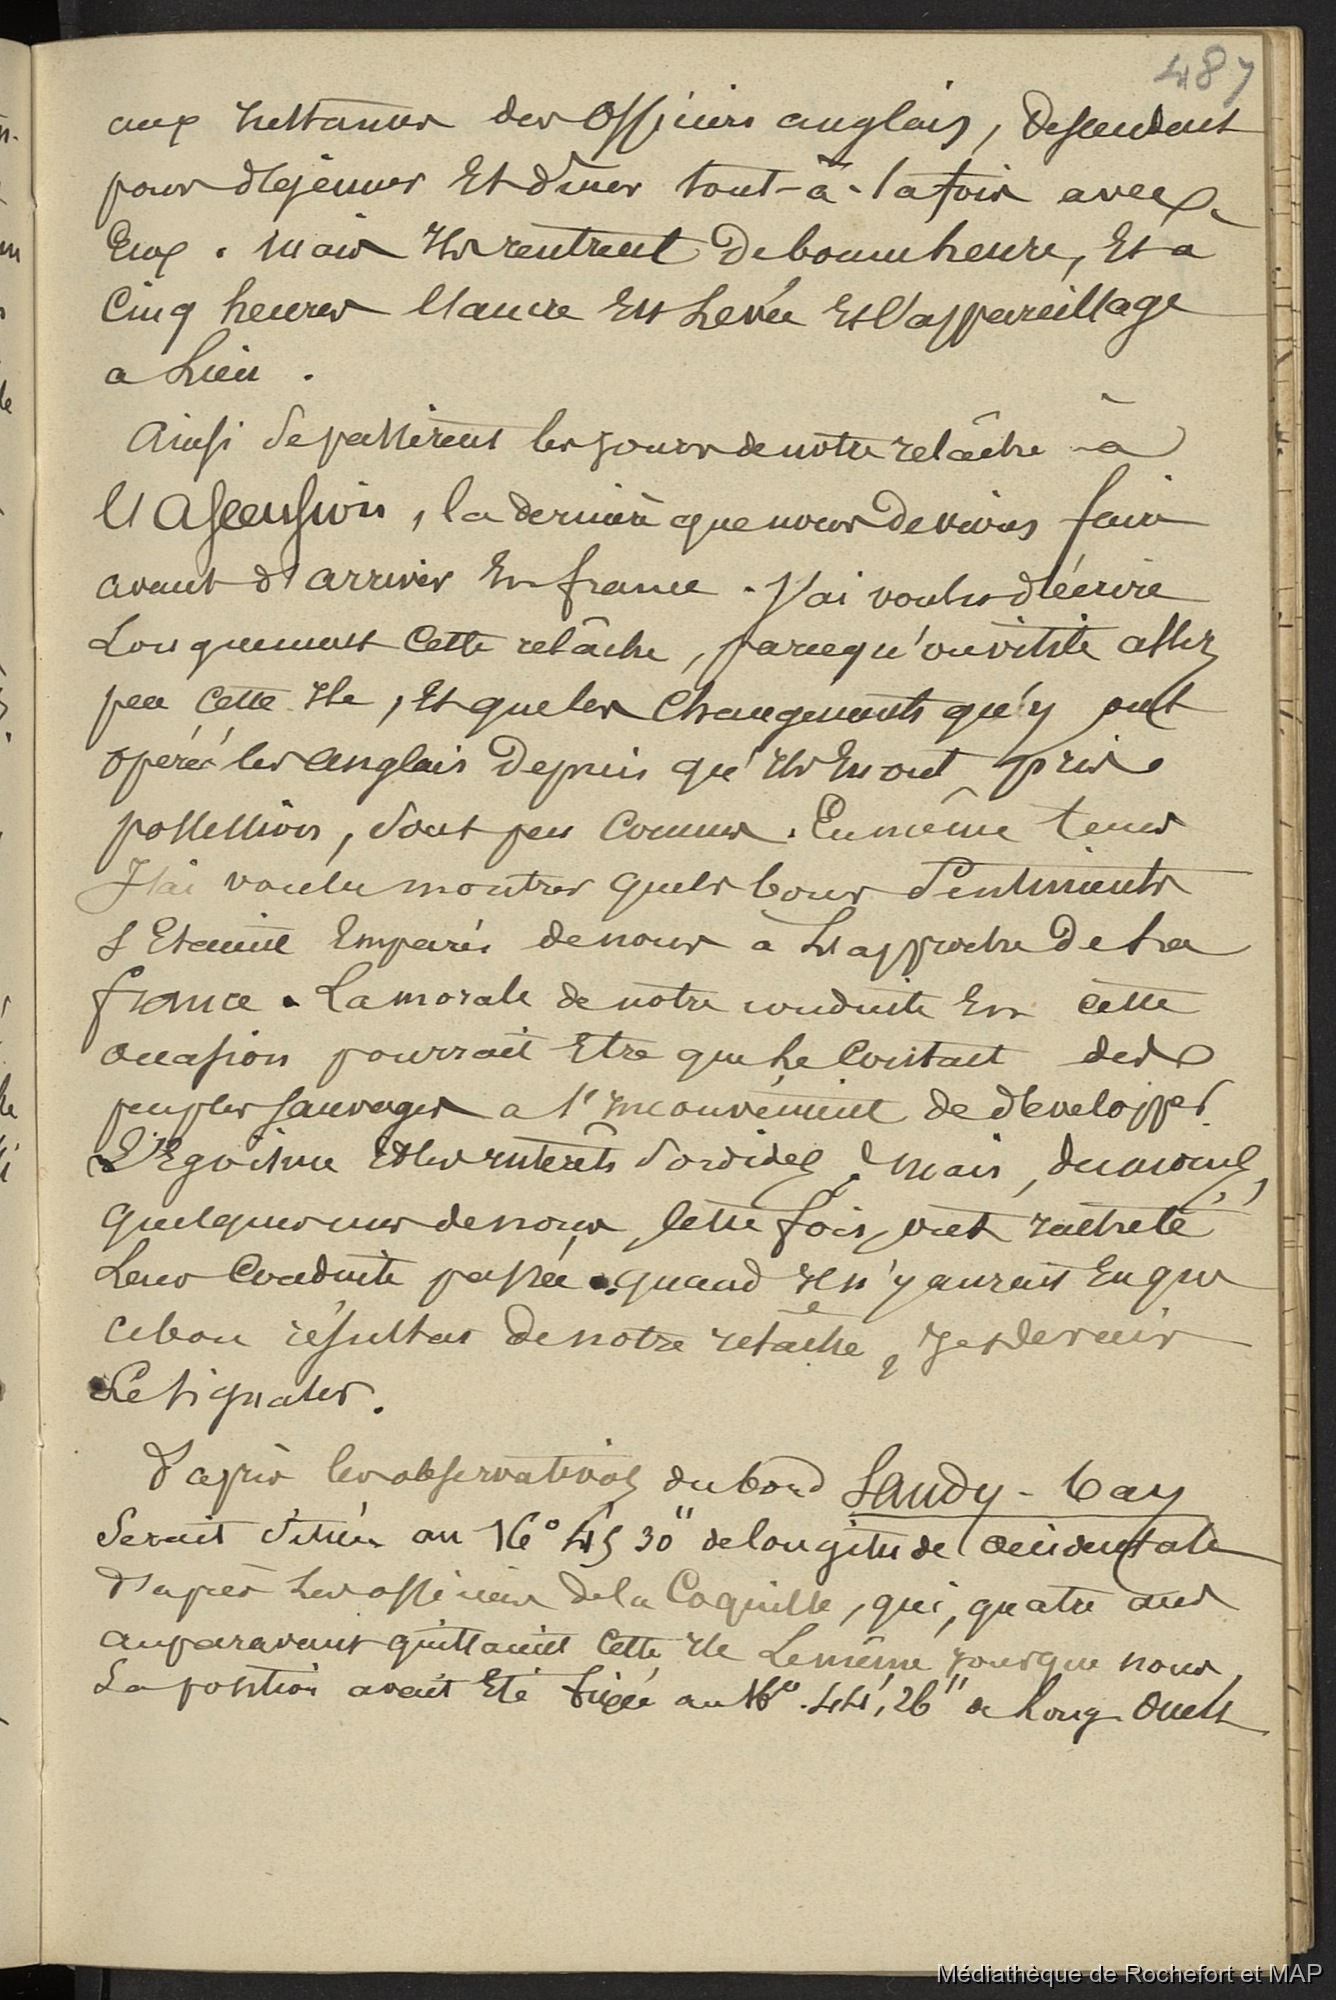 487
aux instances des officiers anglais, descendent
pour déjeuner et dîner tout-à-la fois avec
eux. Mais ils rentrent de bonne heure, et à
cinq heures l'ancre est levée et l'appareillage
a lieu.
Ainsi se passèrent les jours de notre relâche à
l'Ascension, la dernière que nous devions faire
avant d'arriver en france. J'ai voulu décrire
longuement cette relâche, parcequ'on visite assez
peu cette île, et que les changements qu'y ont
opérés les anglais depuis qu'ils en ont pris
possession, sont peu connus. En même tems
J'ai voulu montrer quels bons sentiments
s'étaient emparés de nous à l'approche de la
france. La morale de notre conduite en cette
occasion pourrait être que le contact des
peuples sauvages a l'inconvénient de développer
l'égoïsme et les intérêts sordides. Mais, du moins,
quelques uns de nous, cette fois, ont racheté
leur conduite passée. quand il n'y aurait eu que
ce bon résultat de notre relâche, je devais
le signaler.
D'après les observations du bord Sandy-bay
serait située au 16° 45 30" de longitude occidentale
d'après les officiers de la Coquille, qui, quatre ans
auparavant quittaient cette île le même jour que nous,
la position avait été fixée au 16° .44', 26" de long. Ouest
Médiathèque de Rochefort et MAP